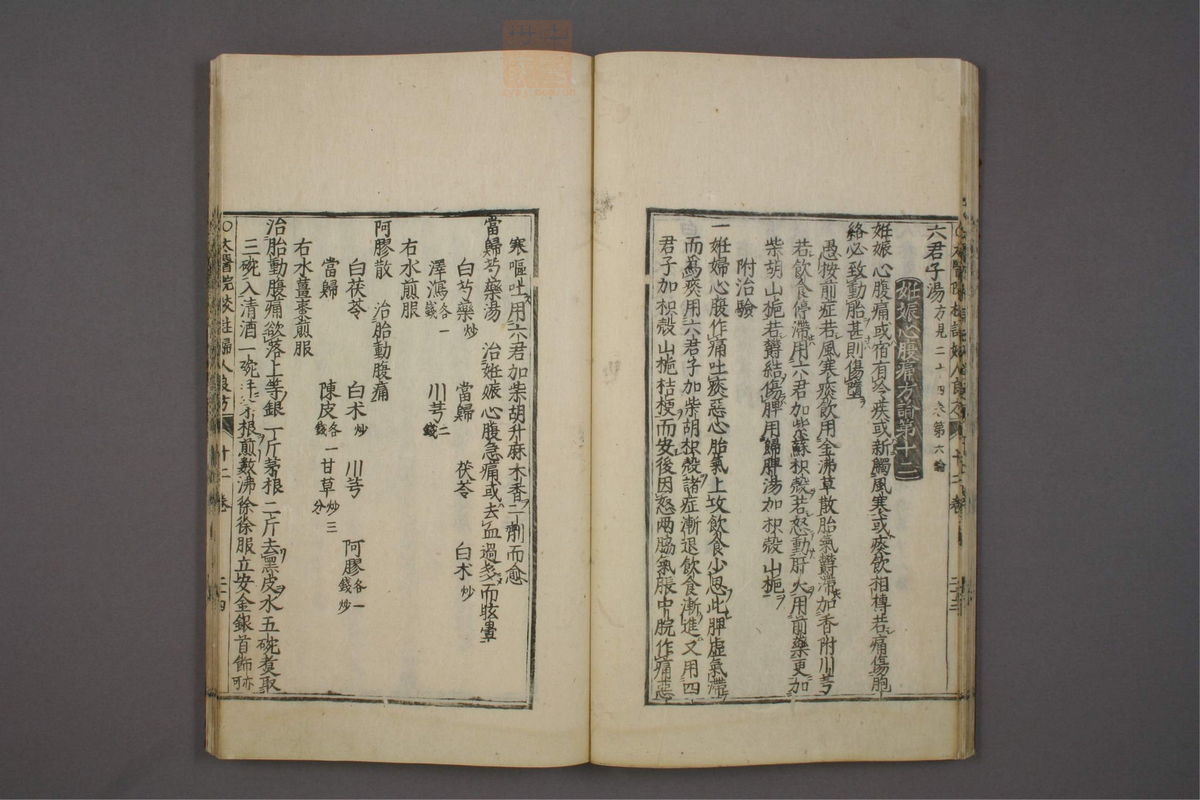 六君子湯方見二十四卷第六論
妊娠心腹痛方論第十二
妊娠心腹痛或宿有冷疾或新觸風寒或痰飲相搏若痛傷胞
絡必致動胎甚則傷墮
愚按前症若風寒痰飲用金沸草散胎氣鬱滯加香附川芎
若飲食停滯用六君加紫蘇枳殼若怒動肝火用前藥更加
柴胡山梔若鬱結傷脾用歸脾湯加枳殼山梔
附治驗
一妊婦心腹作痛吐痰惡心胎氣上攻飲食少思此脾虛氣滯
而爲痰用六君子加柴胡枳殼諸症漸退飲食漸進又用四
君子加枳殼山梔桔梗而安後因怒兩脇氣脹中脘作痛恶
寒嘔吐用六君加柴胡升麻木香二劑而愈
當歸芍藥湯 治妊娠心腹急痛或去血過多而眩暈
白芍藥炒 當歸 茯苓 白术炒
澤瀉各一錢 川芎二錢
右水煎服
阿膠散 治胎動腹痛
白茯苓 白术炒 川芎 阿膠各一錢炒
當歸 陳皮各一錢 甘草炒三分
右水薑棗煎服
治胎動腹痛欲落上等銀一斤茅根二斤去黑皮水五碗煑取
三碗入清酒一碗 茅根煎數沸徐徐服立安金銀首飾亦可
○太醫院校註婦人良方 十二卷 二四